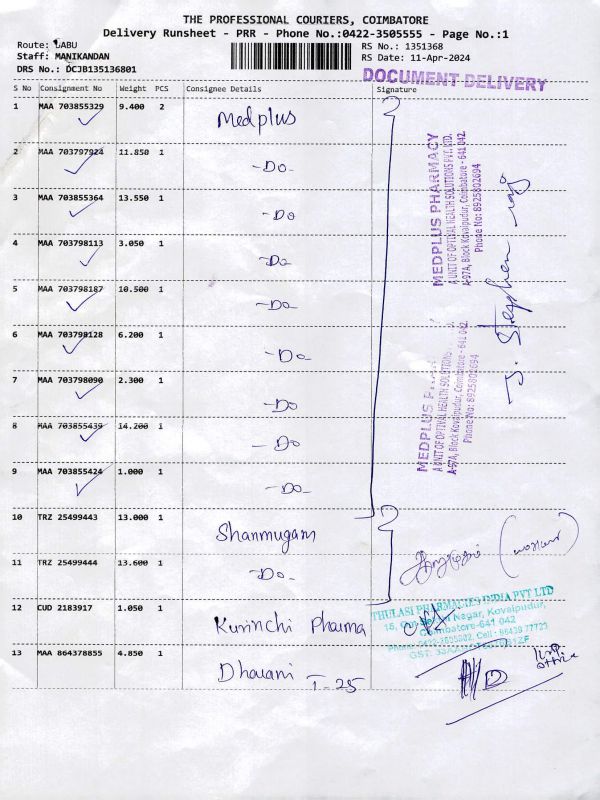 THE PROFESSIONAL COURIERS, COIMBATORE
Delivery Runsheet - PRR - Phone No.:0422-3505555 - Page No.:1
Route: LABU
Staff: MANIKANDAN
DRS No.: DCJB135136801
RS No.: 1351368
RS Date: 11-Apr-2024
DOCUMENT DELIVERY
S No Consignment No Weight PCS Consignee Details Signature
1 MAA 703855329 9.400 2 Medplus
2 MAA 703797924 11.850 1 -Do-
3 MAA 703855364 13.550 1 -Do
4 MAA 703798113 3.050 1 -Do-
5 MAA 703798187 10.500 1 -Do-
6 MAA 703798128 6.200 1 -Do-
7 MAA 703798090 2.300 1 -Do
8 MAA 703855439 14.200 1 -Do
9 MAA 703855424 1.000 1 -Do-
MEDPLUS PHARMACY
A UNIT OF OPTIVAL HEALTH SOLUTIONS PVT. LTD.
A-97A, Block Kovaipudur, Coimbatore - 641 042.
Phone No: 8925802694
J. Stephen raj
MEDPLUS
A UNIT OF OPTIVAL HEALTH SOLUTIONS
A-97A, Block Kovaipudur, Coimbatore - 641 042.
Phone No: 8925802694
10 TRZ 25499443 13.000 1 Shanmugam
11 TRZ 25499444 13.600 1 -Do-
12 CUD 2183917 1.050 1 Kurinchi Pharma
THULASI PHARMACIES INDIA PVT LTD
Nagar, Kovaipudur,
Coimbatore-641 042
Cell : 86439 77723
13 MAA 864378855 4.850 1 Dharani I-25
office